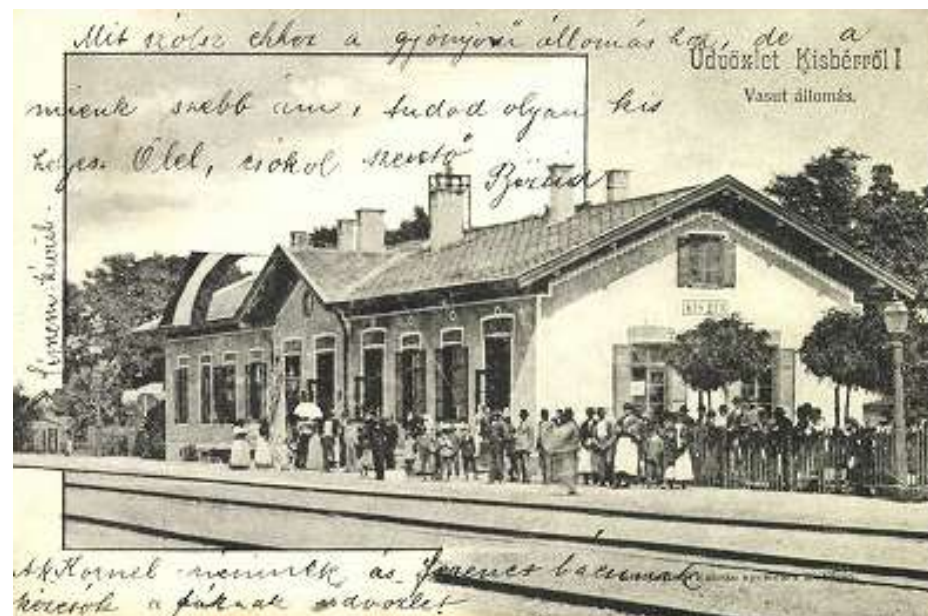 Mit szólsz ehhez a gyönyörű állomáshoz, de a
Üdvözlet Kisbérről!
Vasut állomás.
mienk szebb ám, tudod olyan kis
helyes. Ölel, csókol szerető
Böziád
KISBÉR
Kornél néninek és Ferencz bácsinak
kézcsók a fiúknak üdvözlet